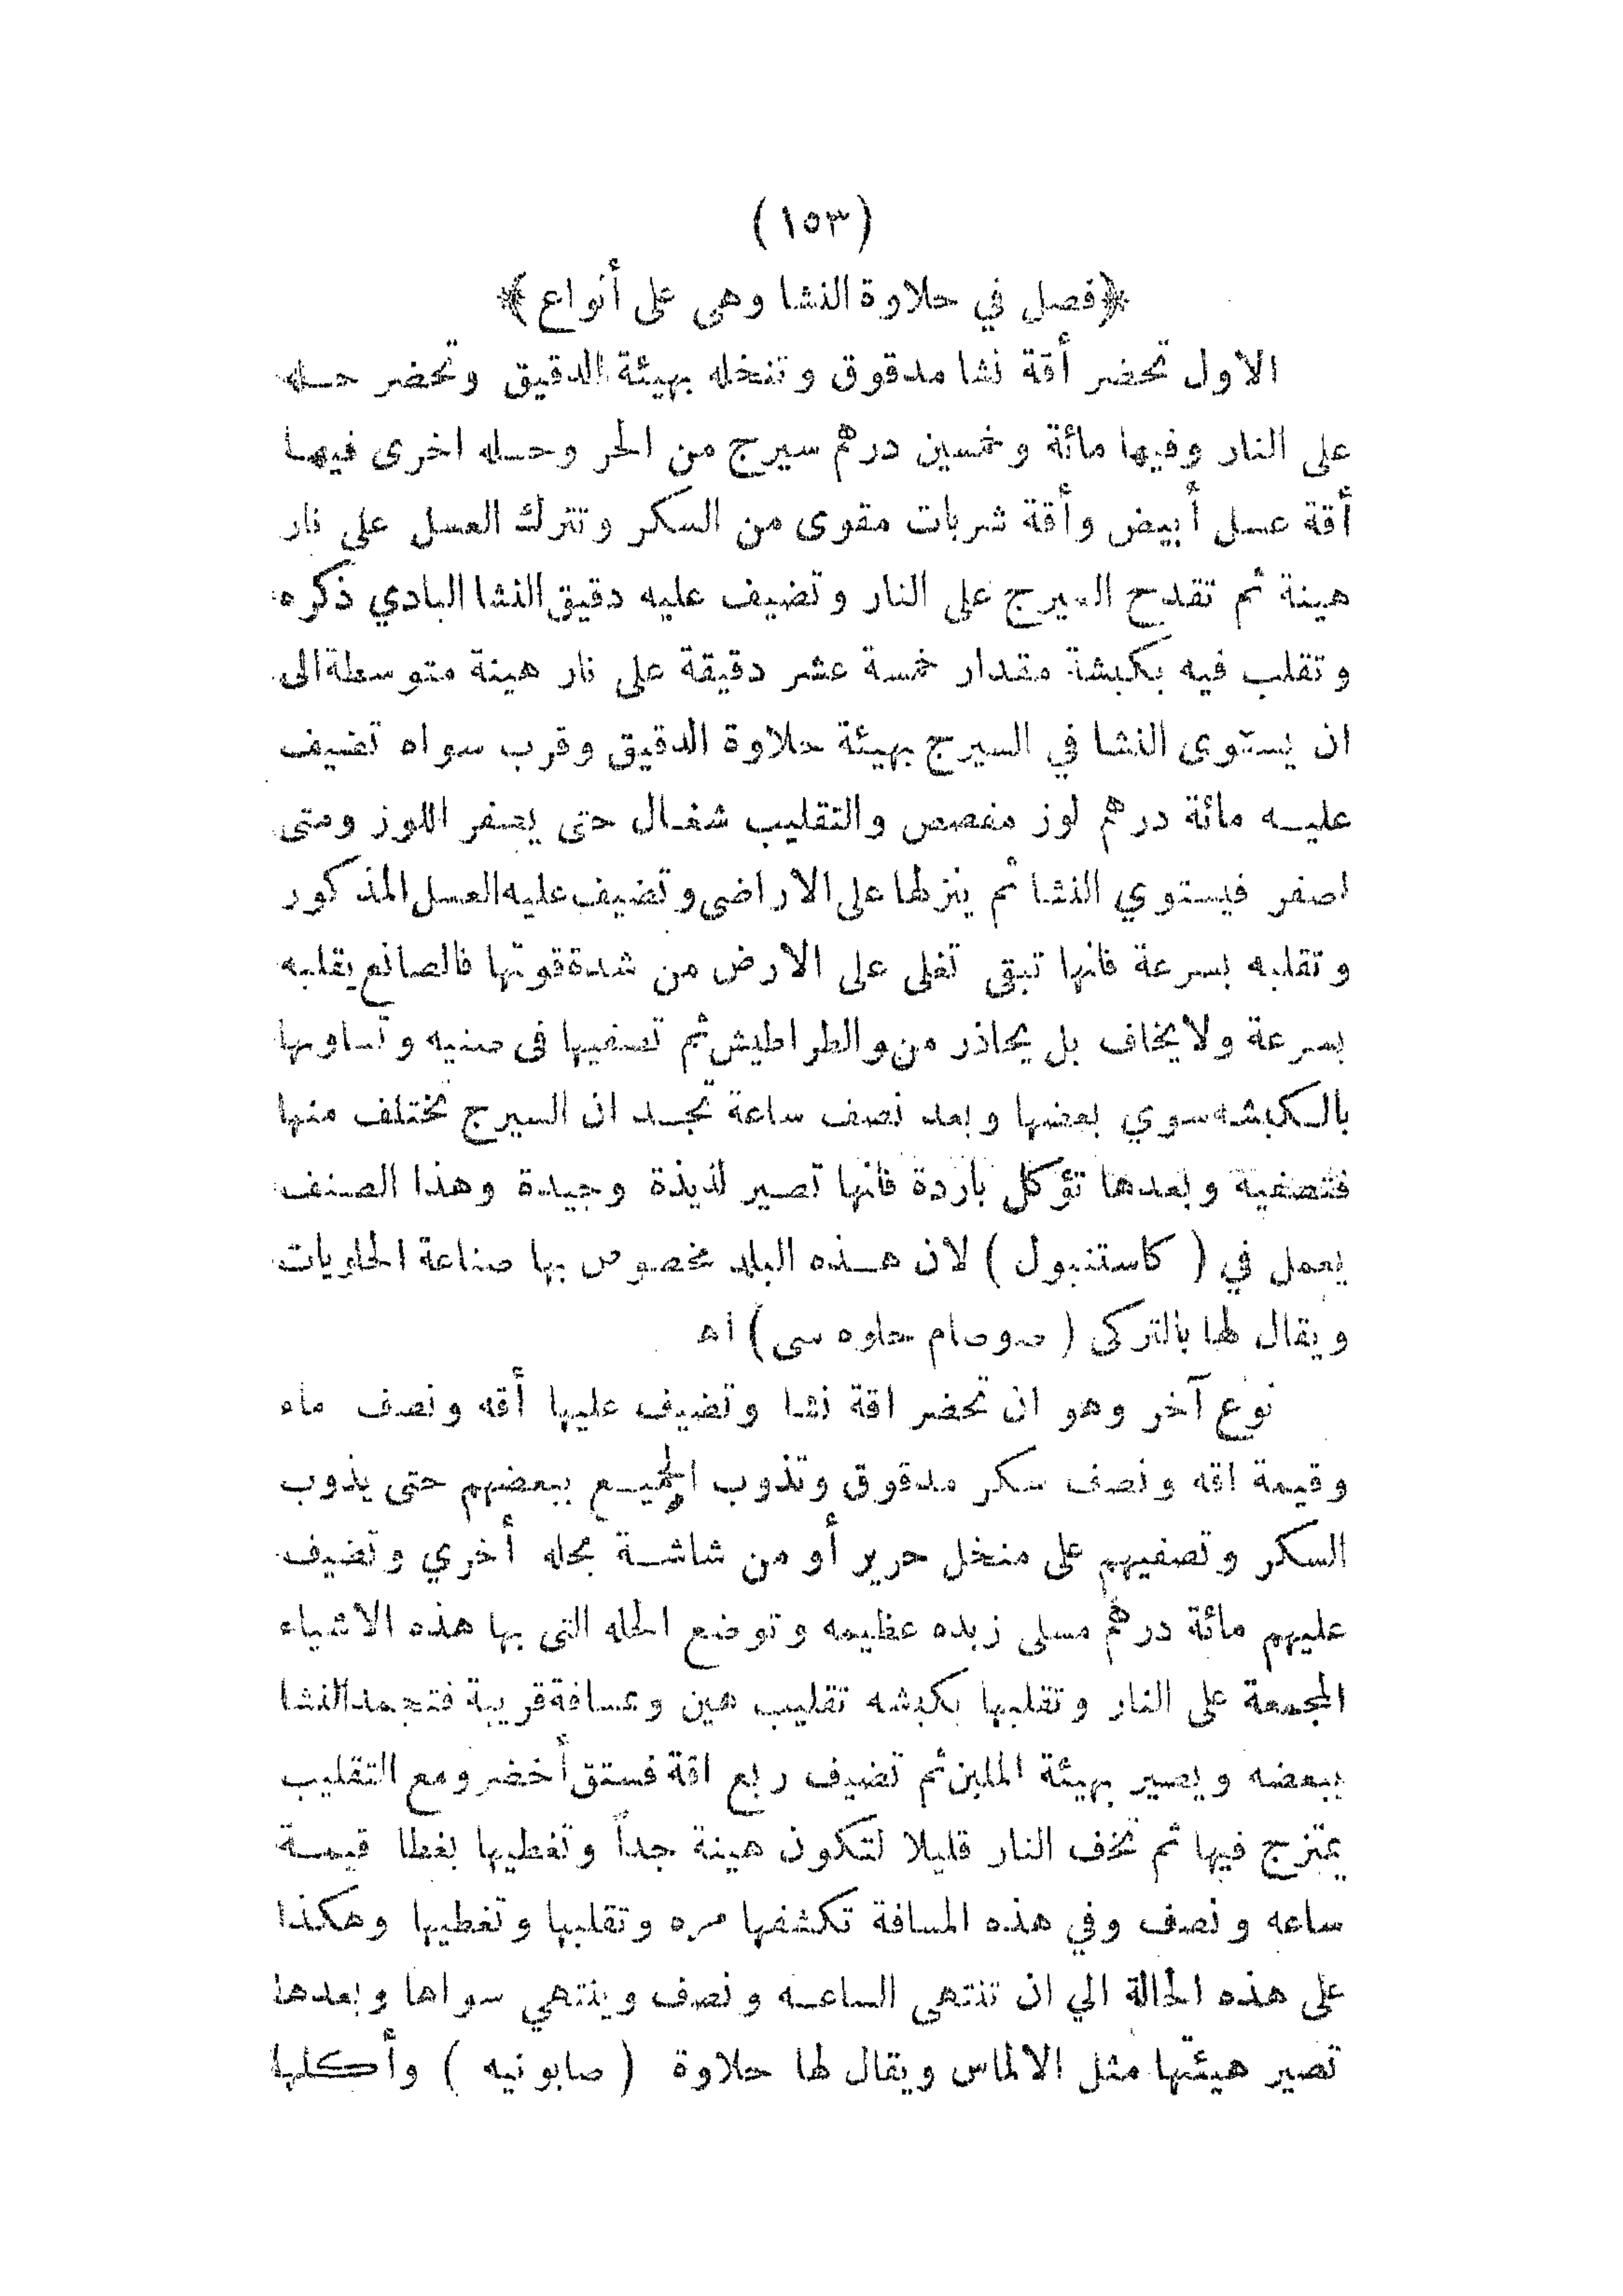 (١٥٣)
﴿فصل في حلاوة النشا وهى على أنواع﴾
الاول تحضر أقة نشا مدقوق وتنخله بهيئة الدقيق وتحضر حله
على النار وفيها مائة وخمسين درهم سيرج من الحر وحله اخرى فيها
أقة عسل أبيض وأقة شربات مقوى من السكر وتترك العسل على نار
هينة ثم تقدح السيرج على النار وتضيف عليه دقيق النشا البادي ذكره
وتقلب فيه بكبشة مقدار خمسة عشر دقيقة على نار هينة متوسطة الى
ان يستوى النشا في السيرج بهيئة حلاوة الدقيق وقرب سواه تضيف
عليه مائة درهم لوز مفصص والتقليب شغال حتى يصفر اللوز ومتى
اصفر فيستوي النشا ثم ينزلها على الاراضى وتضيف عليه العسل المذكور
وتقلبه بسرعة فانها تبقى تغلى على الارض من شدة قوتها فالصانع يقلبه
بسرعة ولا يخاف بل يحاذر من والطراطيش ثم تصفيها فى صنيه وتساويها
بالكبشه سوي بعضها وبعد نصف ساعة تجد ان السيرج تختلف منها
فتصفية وبعدها تؤكل باردة فانها تصير لذيذة وجيدة وهذا الصنف
يعمل في ( كاستنبول ) لان هذه البلد مخصوص بها صناعة الحلويات
ويقال لها بالتركى ( صوصام حلوه سى ) اه
نوع آخر وهو ان تحضر اقة نشا وتضيف عليها أقه ونصف ماء
وقيمة اقه ونصف سكر مدقوق وتذوب الجميع ببعضهم حتى يذوب
السكر وتصفيهم على منخل حرير أو من شاشة بحله أخري وتضيف
عليهم مائة درهم مسلى زبده عظيمه وتوضع الحله التى بها هذه الاشياء
المجمعة على النار وتقلبها بكبشه تقليب هين وبمسافة قريبة فتجمد النشا
ببعضه ويصير بهيئة الملبن ثم تضيف ربع اقة فستق أخضر ومع التقليب
يمتزج فيها ثم تخف النار قليلا لتكون هينة جداً وتغطيها بغطا قيمة
ساعه ونصف وفي هذه المسافة تكشفها مره وتقلبها وتغطيها وهكذا
على هذه الحالة الي ان تنتهى الساعه ونصف وينتهي سواها وبعدها
تصير هيئتها مثل الالماس ويقال لها حلاوة ( صابونيه ) وأكلها